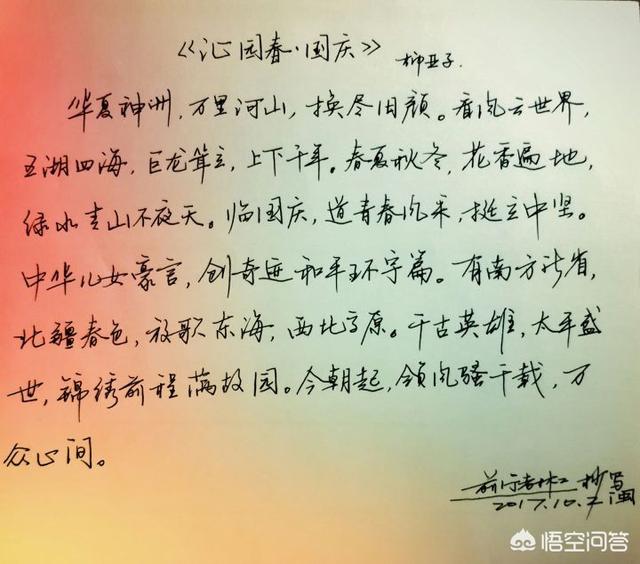 《沁园春·国庆》 柳亚子.
华夏神洲,万里河山,换尽旧颜。看风云世界,
五湖四海,巨龙耸立,上下千年。春夏秋冬,花香遍地,
绿水青山不夜天。临国庆,道青春风采,挺立中坚。
中华儿女豪言,创奇迹和平环宇篇。有南方诸省,
北疆春色,放歌东海,西北高原。千古英雄,太平盛
世,锦绣前程满故园。今朝起,领风骚千载,万
众心间。
抄写
2017.10.7
悟空问答